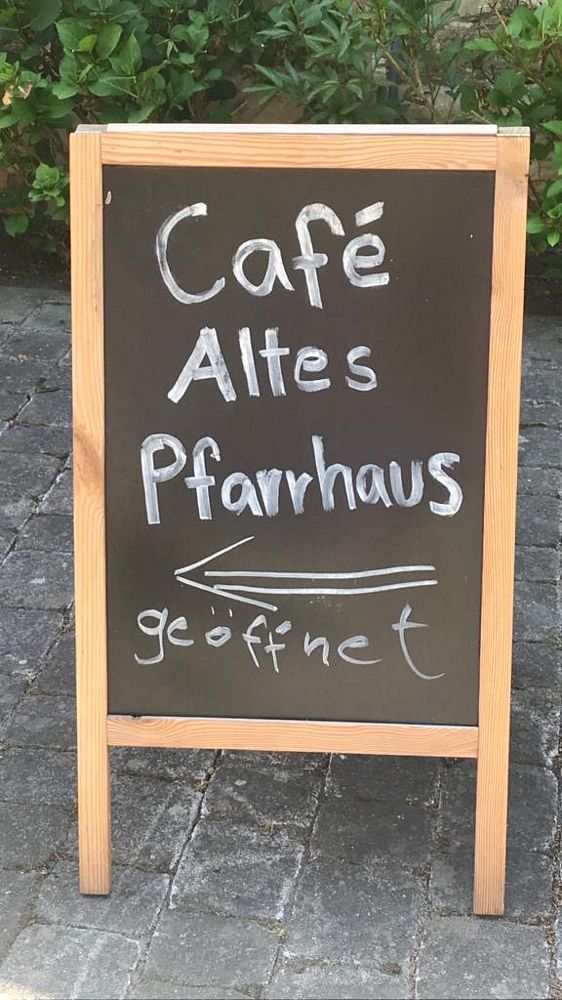 Café
Altes
Pfarrhaus
geöffnet